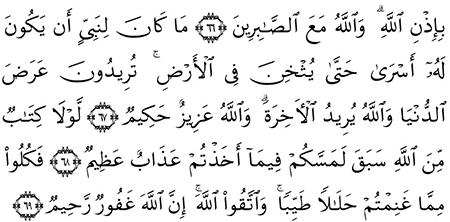 بِإِذْنِ اللَّهِ ۗ وَاللَّهُ مَعَ الصَّابِرِينَ ﴿٦٦﴾ مَا كَانَ لِنَبِيٍّ أَن يَكُونَ
لَهُۥٓ أَسْرَىٰ حَتَّىٰ يُثْخِنَ فِى الْأَرْضِ ۚ تُرِيدُونَ عَرَضَ
الدُّنْيَا وَاللَّهُ يُرِيدُ الْأَخِرَةَ ۗ وَاللَّهُ عَزِيزٌ حَكِيمٌ ﴿٦٧﴾ لَّوْلَا كِتَابٌ
مِّنَ اللَّهِ سَبَقَ لَمَسَّكُمْ فِيمَا أَخَذْتُمْ عَذَابٌ عَظِيمٌ ﴿٦٨﴾ فَكُلُوا۟
مِمَّا غَنِمْتُمْ حَلَالًا طَيِّبًا ۚ وَاتَّقُوا۟ اللَّهَ ۚ إِنَّ اللَّهَ غَفُورٌ رَّحِيمٌ ﴿٦٩﴾